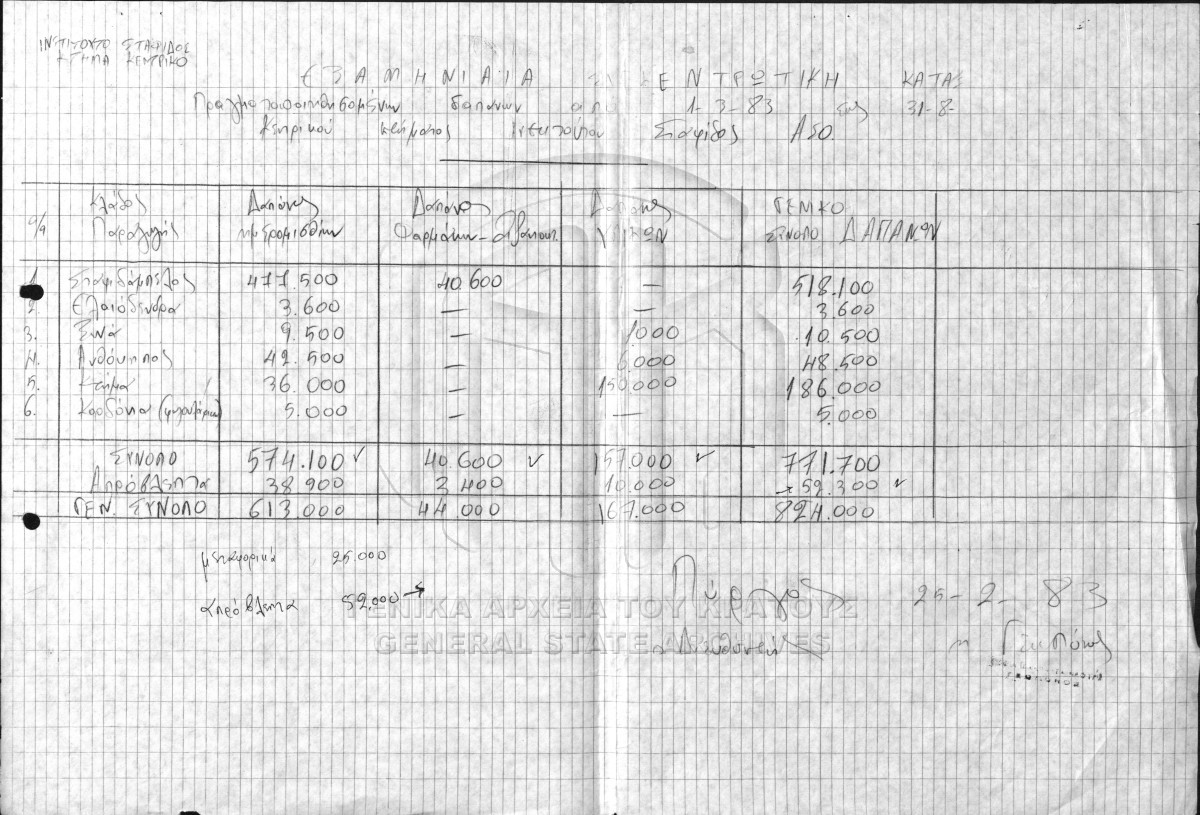 ΙΝΣΤΙΤΟΥΤΟ ΣΤΑΦΙΔΟΣ
ΚΤΗΜΑ ΚΕΝΤΡΙΚΟ
ΕΞΑΜΗΝΙΑΙΑ ΣΥΓΚΕΝΤΡΩΤΙΚΗ ΚΑΤΑΣ
δαπανών από 1-3-83 έως 31-8-
Κεντρικού κτήματος Ινστιτούτου Σταφίδος ΑΣΟ.
α/α Κλάδος Παραγωγής Δαπάνες ημερομισθίων Δαπάνες Φαρμάκων - Δαπάνες ΥΛΙΚΩΝ ΓΕΝΙΚΟ ΣΥΝΟΛΟ ΔΑΠΑΝΩΝ
1. Σταφιδάμπελος 477.500 40.600 — 518.100
2. Ελαιόδενδρα 3.600 — — 3.600
3. Ξινά 9.500 — 1.000 10.500
4. Ανθόκηπος 42.500 — 6.000 48.500
5. Κτήμα 36.000 — 150.000 186.000
6. Κορδόνια 5.000 — — 5.000
ΣΥΝΟΛΟ 574.100 ✓ 40.600 ✓ 157.000 ✓ 771.700
Απρόβλεπτα 38.900 3.400 10.000 52.300 ✓
ΓΕΝ. ΣΥΝΟΛΟ 613.000 44.000 167.000 824.000
μεταφορικά 25.000
απρόβλεπτα 52.000 →
Πύργος 25-2-83
ΓΕΝΙΚΑ ΑΡΧΕΙΑ ΤΟΥ ΚΡΑΤΟΥΣ
GENERAL STATE ARCHIVES